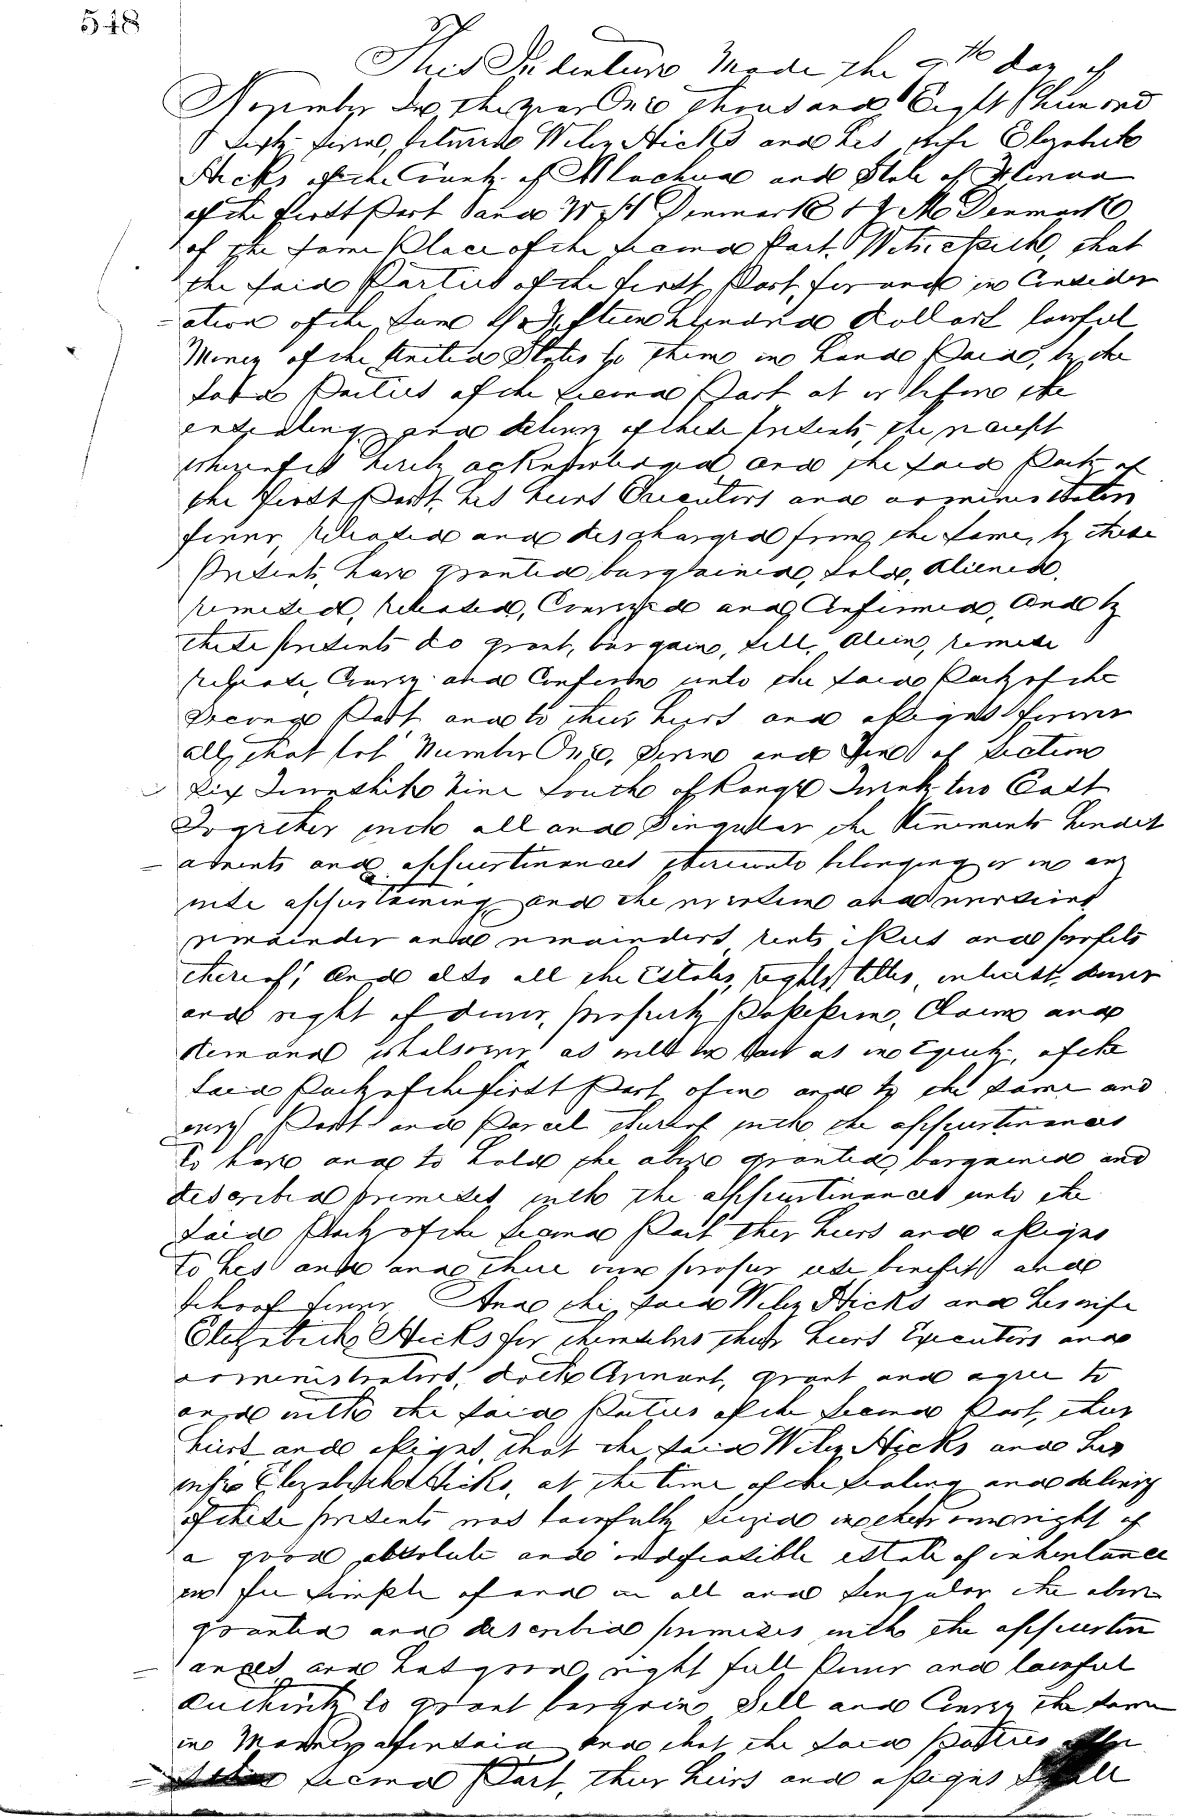 548
This Indenture Made the 9th day of
November In the year One thousand Eight Hundred
& Sixty seven, between Wiley Hicks and his wife Elizabeth
Hicks of the County of Alachua and State of Florida
of the first Part and W H Denmark & M Denmark
of the same Place of the second Part. Witnesseth, that
the said Parties of the first Part, for and in Consider
=ation of the sum of Fifteen hundred dollars lawful
Money of the United States to them in hand Paid, by the
said Parties of the second Part at or before the
ensealing and delivery of these presents, the receipt
whereof is hereby acknowledged and the said Party of
the first Part, his heirs Executors and administrators
forever released and discharged from the same, by these
Presents, have granted bargained, sold, aliened,
remised, released, Conveyed and Confirmed, And by
these presents do grant, bargain, sell, alien, remise
release, Convey and Confirm unto the said Party of the
Second Part, and to their heirs and assigns forever
all, that lot Number One, Seven and of Section
Six Township Nine South of Range Twenty two East
Together with all and Singular the tenements heredit
=aments and appurtinances thereunto belonging or in any
wise appurtaining and the revertion and reversions
remainder and remainders, rents issues and profits
thereof; And also all the Estates, rights, titles, interest, dower
and right of dower, property Possession, Claim and
demand whatsoever as well in Law as in Equity, of the
said Party of the first Part of in and to the same and
every Part and Parcel thereof with the appurtinances
To have and to hold the above granted, bargained and
described premises with the appurtinances unto the
said Party of the second Part their heirs and assigns
To his and and there own proper use benefit and
behoof forever And the said Wiley Hicks and his wife
Elizabeth Hicks for themselves their heirs Executors and
administrators, doth Covenant, grant and agree to
and with the said Parties of the second Part, their
heirs and assigns, that the said Wiley Hicks and his
wife Elizabeth Hicks, at the time of the sealing and delivery
of these presents was lawfully seized in their own right of
a good absolute and indefeasible estate of inheritance
in fee simple of and in all and singular the above
granted and described premises with the appurtin
=ances and has good right full Power and lawful
authority to grant bargain Sell and Convey the same
in Manner aforesaid And that the said Parties of the
= second Part, their heirs and assigns Shall